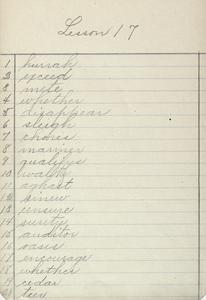 Lesson 17
1 hurrah
2 exceed
3 mite
4 whether
5 disappear
6 sleigh
7 chores
8 manner
9 qualify
10 walk
11 aghast
12 sinew
13 ensue
14 surety
15 auditor
16 oasis
17 encourage
18 whether
19 cedar